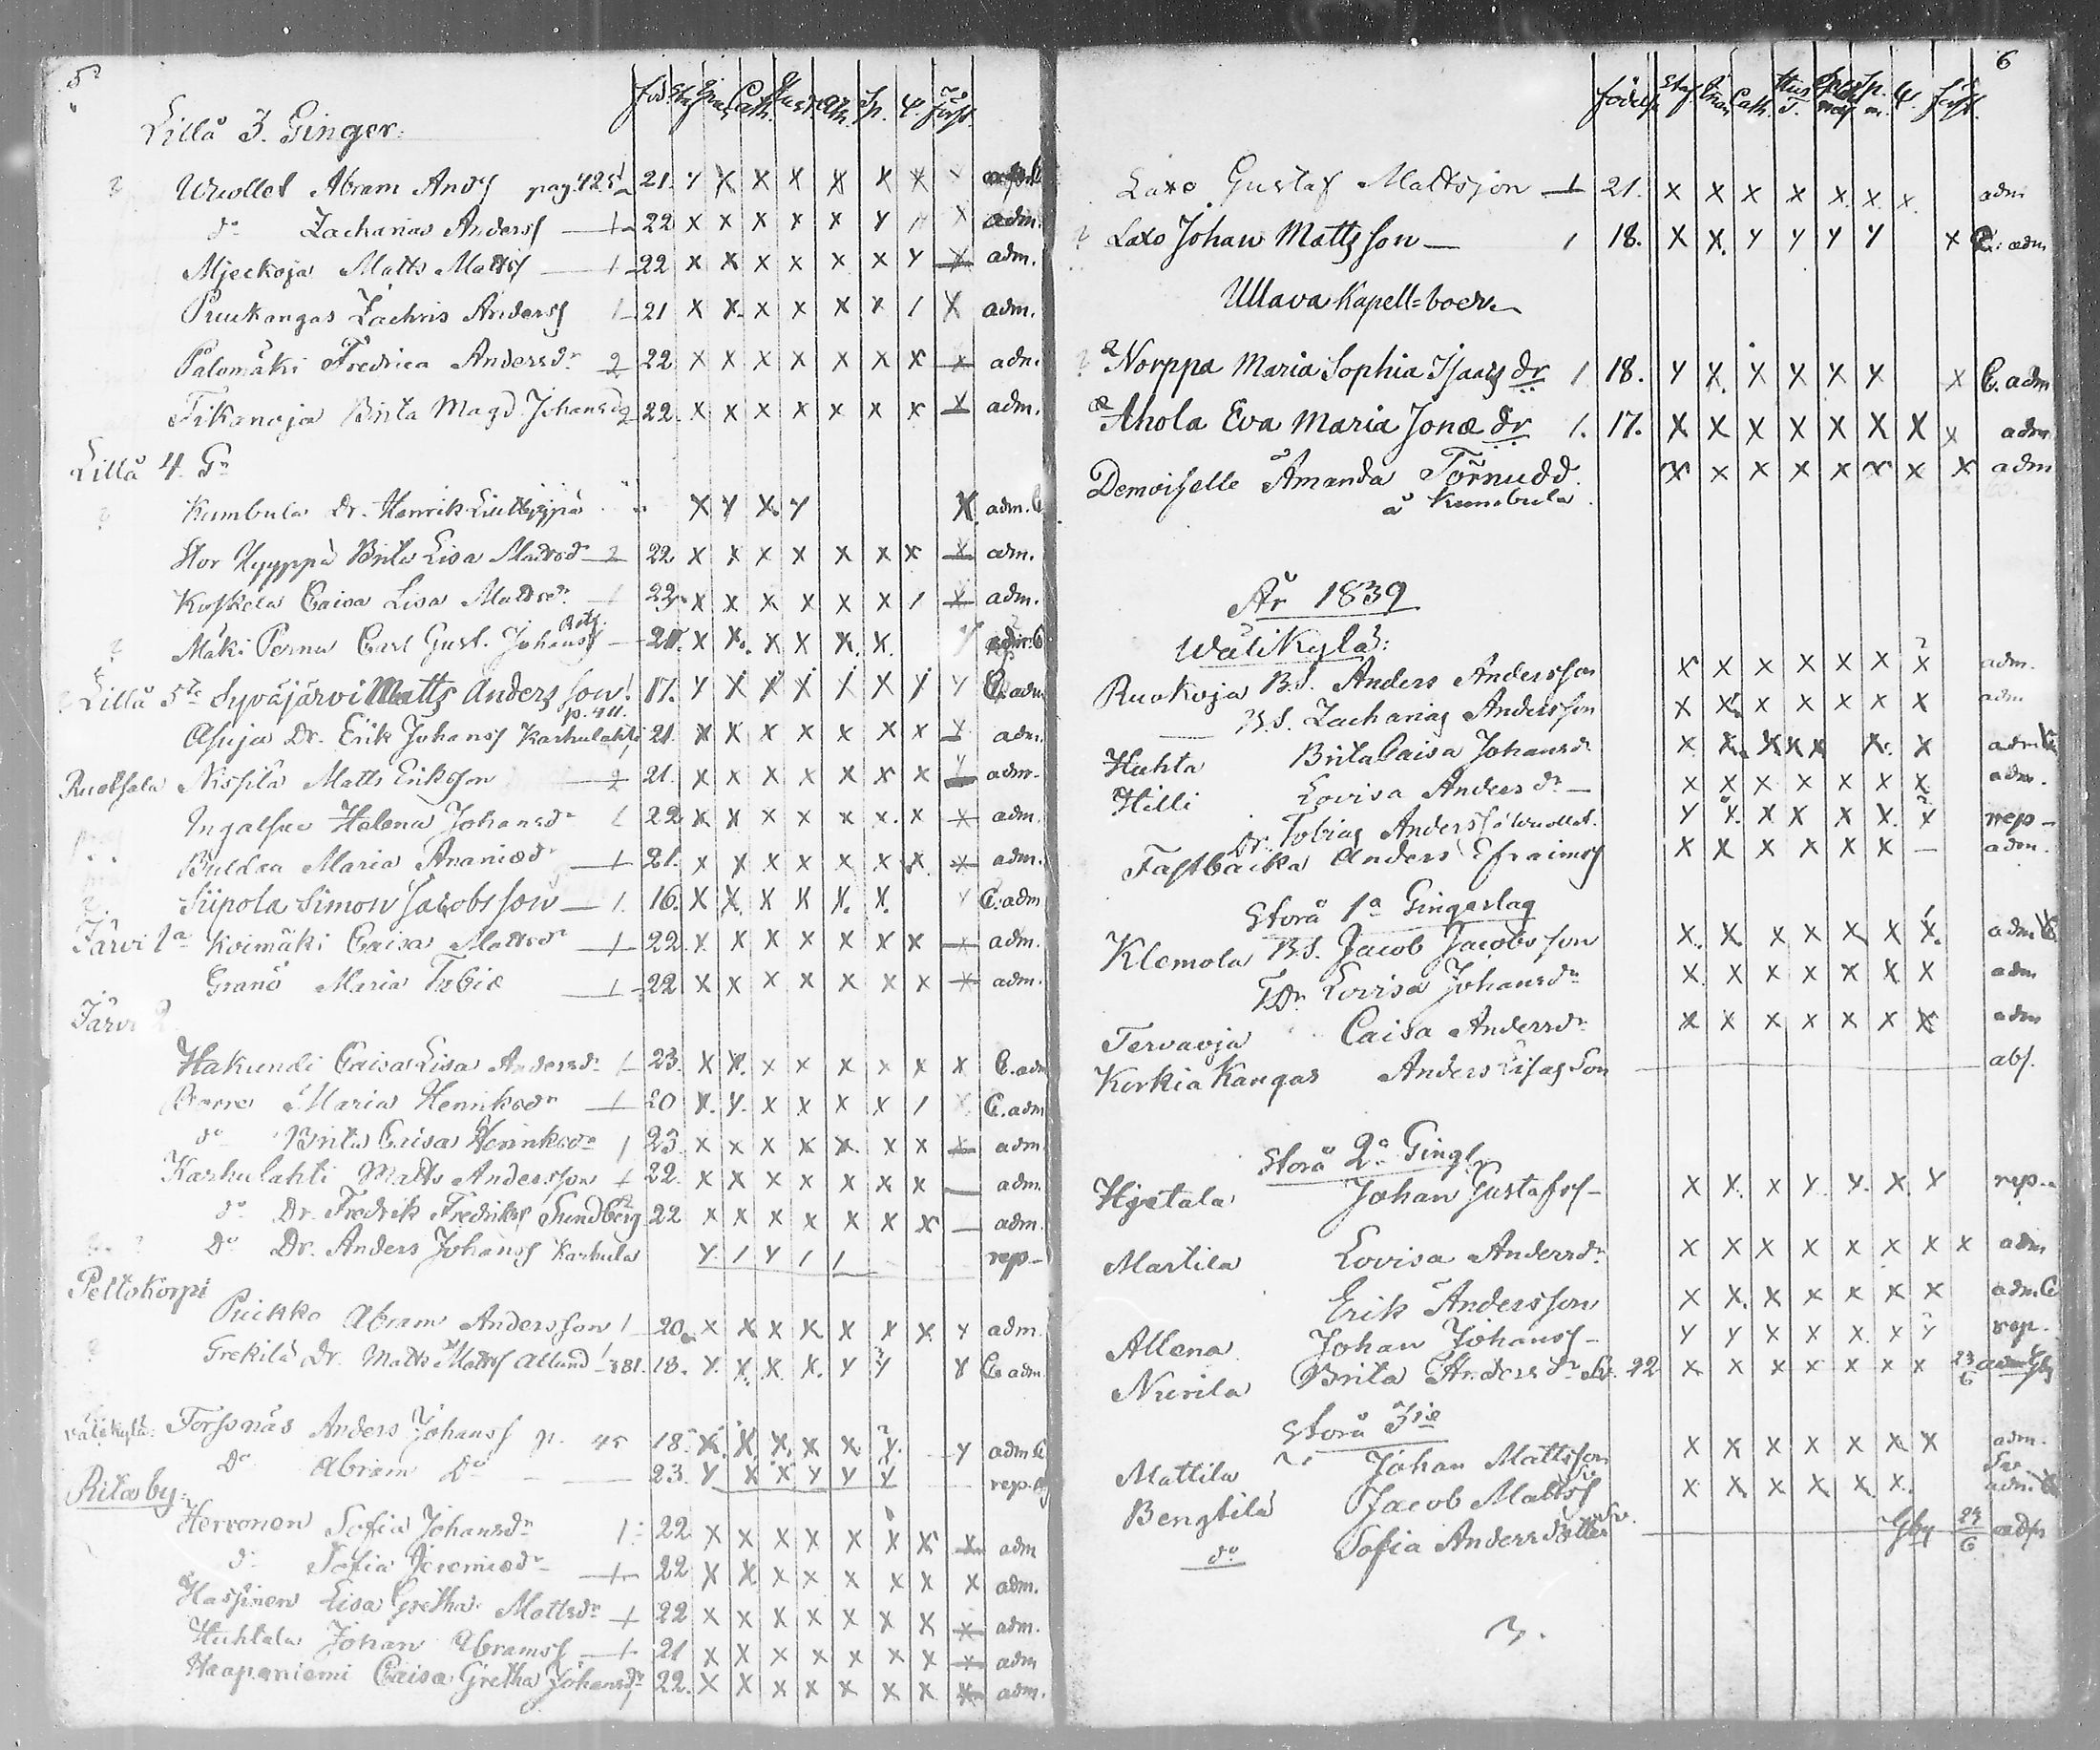 5
Lillå 3. Ginger:
Wuollet Abram Andsf pag. 425 21. y x x x x x x x
do Zacharias Andersf 1 22 x x x x x y x adm.
Mjeckoja Matts Mattsf 1 22 x x x x x x y x adm.
Puukangas Zachris Andersf 1 21 x x. x x x x 1 x adm.
Palomäki Fredrica Andersdr 2 22 x x x x x x x x adm.
Tikanoja Brita Magd. Johansd 2 22. x x x x x x x x adm.
Lillå 4. Gr
Kumbula Dr. Henrik x y x. y x. adm. C
Stor Hyyppä Brita Lisa Mattsdr 2 22 x x x x x x x x adm.
Koskela Caisa Lisa Mattsdr 1 22 x x x x x x 1 x adm.
Mäki Perna Carl Gust. Johansf 21. x x. x x x. x.
Lillå 5te Syväjärvi Matts Andersson 17. y x x x / x / y C. adm
p. 411.
Asuja Dr. Erik Johansf Karhulahti 21. x x x x x x x x adm.
Ruotsala Nissilä Matts Eriksson 2 21. x x x x x x x adm.
Ingalsuo Helena Johansdr 1 22 x x x x x x. x x adm.
Buldaa Maria Ananiædr 1 21. x x x x x x x. x adm.
Siipola Simon Jacobsson 1. 16. x x. x x x. x. y C. adm
Järvi 1a Koimäki Caisa Mattsdr 1 22. x x x x x x x x adm.
Granö Maria Tobiæ 1 22 x x x x x x x x adm.
Järvi 2
Hakundi Caisa Lisa Andersdr 1 23. x x. x x x x x x C. adm
Borre Maria Henriksdr 1 20 x. y. x x x x 1 C. adm
do Brita Caisa Henriksdr 1 23. x x x x x. x x x adm
Karhulahti Matts Andersson 1 22. x x x x x x x — adm.
do Dr. Fredrik Fredriksf Sundberg 22 x x x x x x x — adm.
Do Dr. Anders Johansf Karhula y 1 y 1 1 rep-
Peltokorpi
Puikko Abram Andersson 1 20. x x x x. x x x. y adm.
Grekilä Dr. Matts Mattsf Allund 381. 18. y. x. x. x. y y y C. adm.
Välikylä: Forssnäs Anders Johansf p. 45 18. x. x x. x x. y. y adm C
Do Abram Do 23. y x x y y y rep.
Ritaby:
Herronen Sofia Johansdr 1. 22 x x x x x x x. x adm
do Sofia Jeremiædr 1 22 x x x x x x x x adm.
Hassinen Lisa Gretha Mattsdr 1 22 x x x x x x x x adm.
Huhtala Johan Abramsf 1 21 x x x x x x x x adm
Haapaniemi Caisa Gretha Johansdr 22. x x x x x x x x adm.
6
Laxo Gustaf Mattsson 1 21. x x x x x. x. x. adm
Laxo Johan Mattsson 1 18. x x. y y y y x C. adm
Ullava Kapell=boer
Norppa Maria Sophia Isaacs dr 1 18. y x. x x x x x C. adm
Ahola Eva Maria Jonæ dr 1. 17. x x x x x x x x adm
Demoiselle Amanda Törnudd x x x x x x x x adm
å Kumbula
År 1839
Wälikylä:
Ruokoja B.S. Anders Andersson x x x x x x x adm.
B.S. Zacharias Andersson x x x x x x x adm
Huhta Brita Caisa Johansdr x x x x x x. x adm C
Hilli Lovisa Andersdr x x x x x x x adm.
Dr. Tobias Andersf å Wuollet. y x. x x x x. x rep-
Fastbacka Anders Efraimsf x x x x x x — adm.
Storå 1a Gingerlag
Klemola B.S. Jacob Jacobsson x. x. x x x. x x. adm C
TDr. Lovisa Johansdr x. x x x x x x adm
Tervaoja Caisa Andersdr x x x x x x x adm
Korkia Kangas Anders Isacsson abs.
Storå 2a Gingl.
Hietala Johan Gustafsf x x. x y. y. x. y rep.
Martila Lovisa Andersdr x x x x x x x x adm
Erik Andersson x x. x x x x x adm. C
Allena Johan Johansf y y x x x. x y rep.
Nurila Brita Andersdr 22 x x x x x x x 23/6 adm Gby
Storå 3ie
Mattila Johan Mattsson x x x x x x x adm.
Bengtila Jacob Mattsf x x. x x. x. x. adm. C
do Sofia Andersdotter Gby 24/6 adm
3.